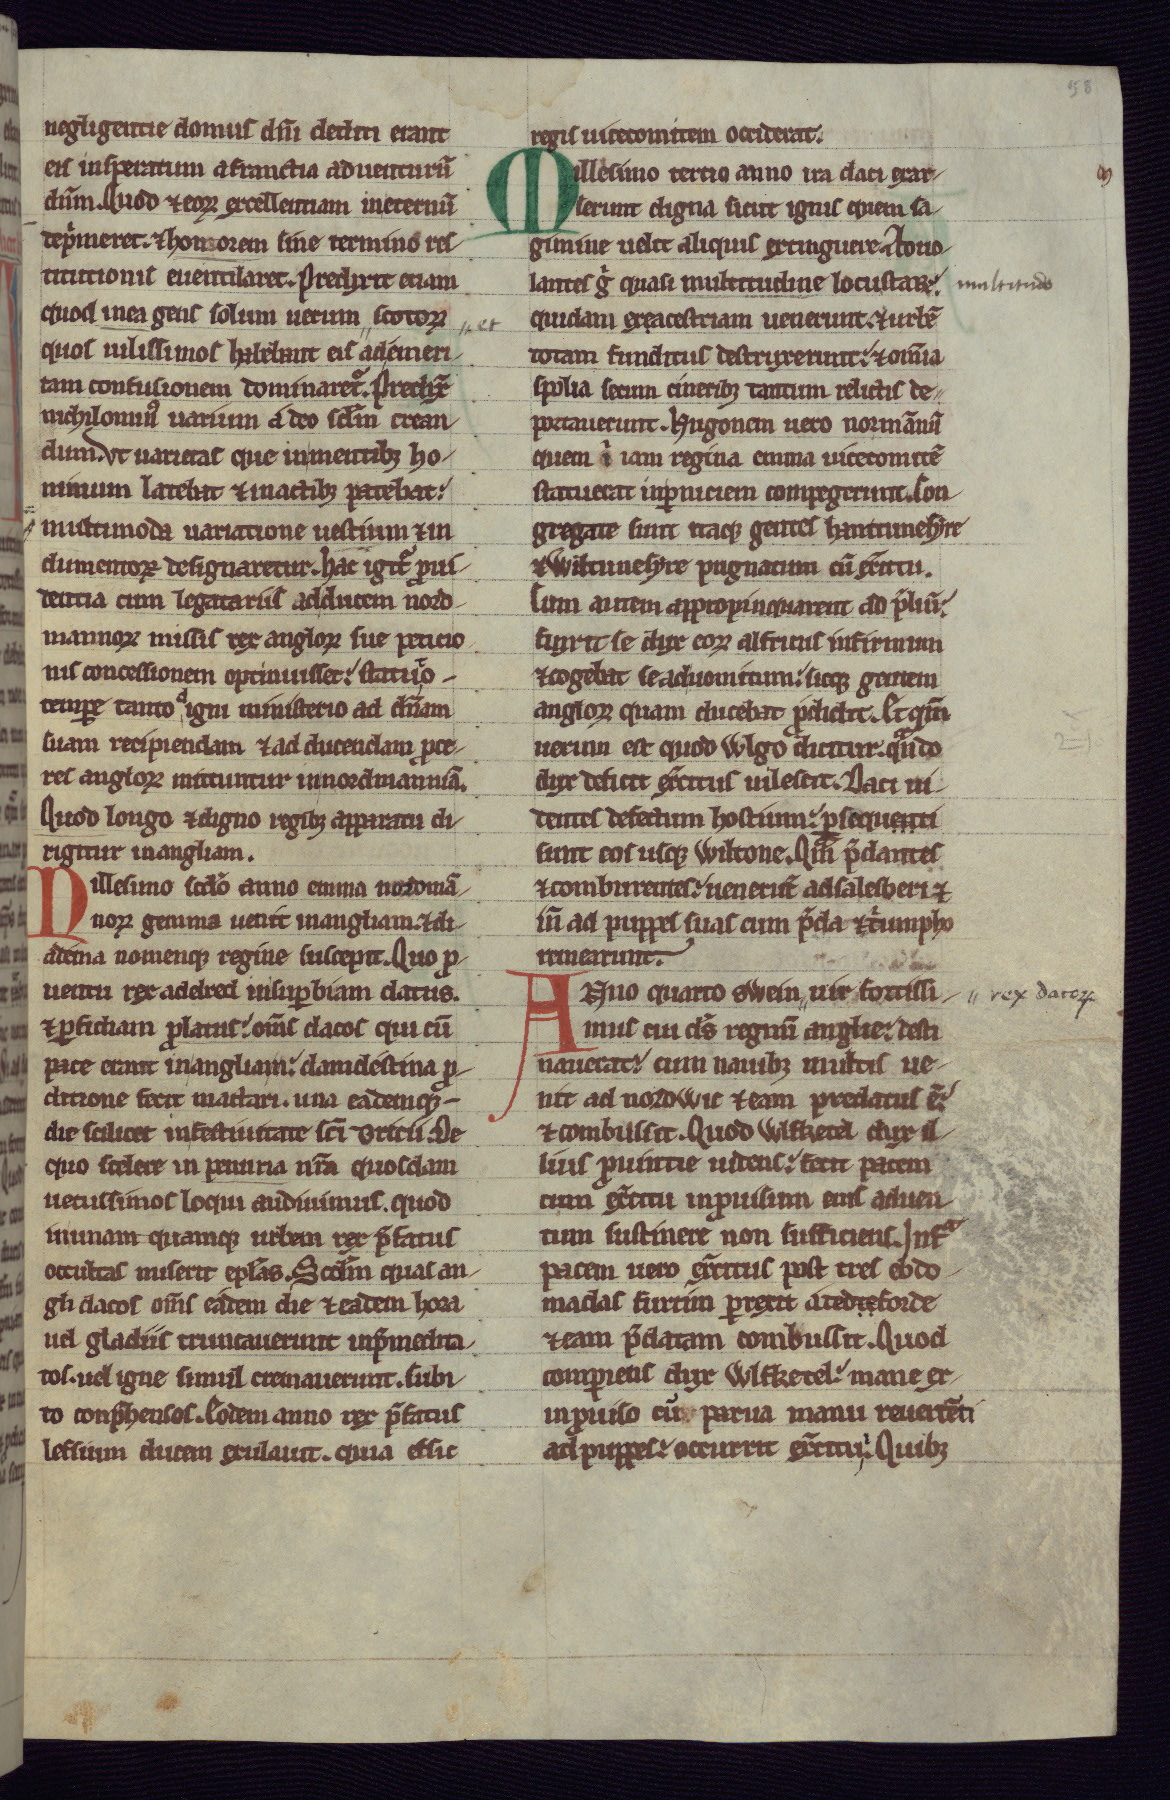 58
negligentie domus dn̄i dediti erant
eis insperatum a francia aduenturū
dn̄m. Quod ⁊ eoꝝ excellentiam in eternū
dep̄meret. ⁊ honorem sine termino res
titutionis euentilaret. Predixit etiam
quod in ea gens solum uerum scotoꝝ
et
quos uilissimos habebant eis ad emeri-
tam confusionem dominaret᷑. Predixit
nichilominꝰ uarium adeo sc̄lm crean-
dum. Vt uarietas que in mentibꝫ ho-
minum latebat ⁊ in actibꝫ patebat:
multimoda uariatione uestium ⁊ in
dumentoꝝ designaretur. hac igit᷑ ꝓui-
dentia cum legatariis ad ducem nord-
mannoꝝ missis rex angloꝝ sue peticio
nis concessionem optinuisset: statuto-
tempore tanto digni ministerio ad dn̄am
suam recipiendam ⁊ ad ducendam ꝓce-
res angloꝝ mittuntur in nordmanniā.
Quod longo ⁊ digno regibꝫ apparatu di-
rigitur in angliam.
Millesimo scd̄o anno emma nordmā-
noꝝ gemma uenit in angliam. ⁊ di-
adema nomenqꝫ regine suscepit. Quo ꝓ-
uentu rex adelred in suꝑbiam elatus.
⁊ ꝑfidiam ꝓlatus: om̄s dacos qui cū
pace erant in angliam: clamdestina ꝓ-
ditione fecit mactari. una eademqꝫ-
die scilicet in festiuitate sc̄i Bricii. De
quo scelere in penuria nr̄a quosdam
uetussimos loqui audiuimus. quod
in unam quamqꝫ urbem rex p̄fatus
occultas miserit ep̄las. Scd̄m quas an-
gli dacos om̄s eadem die ⁊ eadem hora
uel gladiis truncauerunt inp̄medita-
tos. uel igne simul cremauerunt. subi-
to conp̄hensos. Eodem anno rex p̄fatus
lefsium ducem exulauit. quia effic
regis uicecomitem occiderat.
Millesimo tertio anno ira daci exar-
serunt digna sicut ignis quem sa-
gimine uelit aliquis extinguere. Aduo-
lantes g̊ quasi multitudine locustaꝝ:
multitudo
quidam exeacestriam uenerunt. ⁊ urbē
totam funditus destruxerunt: ⁊ om̄ia
spolia secum cineribꝫ tantum relictis de-
portauerunt. Hugonem uero normānū
quem i iam regina emma uicecomitē
statuerat in ꝑniciem compegerunt. Con
gregate sunt itaqꝫ gentes hamtunesyre
⁊ Wiltunesyre pugnatum cū exc̄itu.
Cum autem appropinquarent ad p̄liū:
finxit se dux eoꝝ alfricus infirmum
⁊ cogebat se ad uomitum: sicqꝫ gentem
angloꝝ quam ducebat ꝓdidit. Et qm̄
uerum est quod wlgo dicitur. qn̄do
dux deficit exc̄itus uilescit. Daci ui-
dentes defectum hostium: ꝑsequuti
sunt eos usqꝫ wiltone. Quā p̄dantes
⁊ comburentes: uenerūt ad salesberi ⁊
in̄ ad puppes suas cum p̄da ⁊ t̄umpho
remearunt.
Anno quarto swein uir fortissi-
rex dacoꝝ
mus cui ds̄ regnū anglie: desti
nauerat: cum nauibꝫ multis ue-
nit ad nordwic ⁊ eam predatus ē:
⁊ combussit. Quod wlfketel dux il-
lius ꝓuintie uidens: fecit pacem
cum exc̄itu inprouisum eius aduen-
tum sustinere non sufficiens. Infra
pacem uero exc̄itus post tres ebdo-
madas furtim ꝑrexit a tedeforde
⁊ eam p̄datam combussit. Quod
comperiens dux wlfketel: mane ex
inprouiso cū parua manu reuertēti
ad puppes: occurrit exc̄itui. Quibꝫ